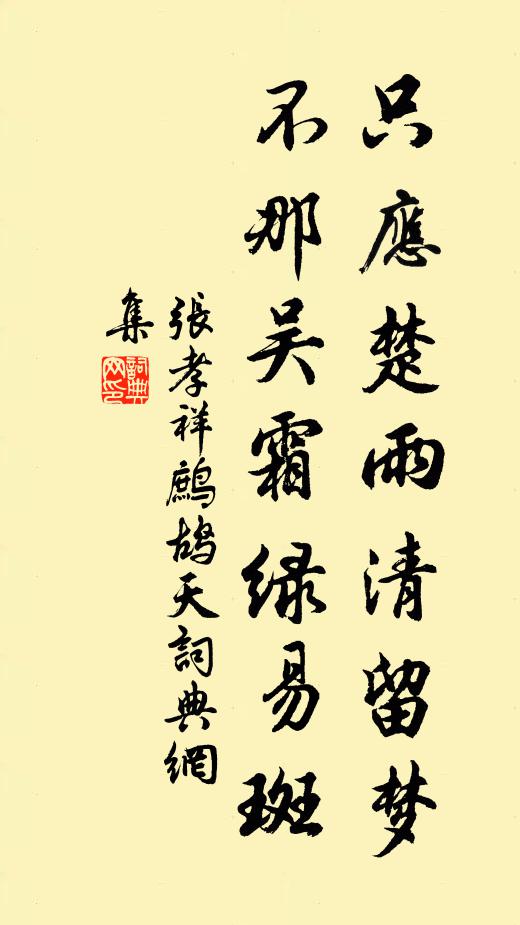 只應楚雨清留梦
不那吴霜绿易斑
張孝祥鷓鴣天詞典網
集
詞典网印